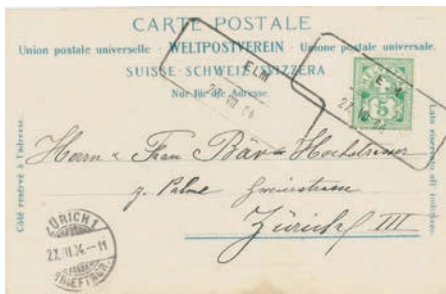 CARTE POSTALE
Union postale universelle - WELTPOSTVEREIN - Unione postale universale.
SUISSE SCHWEIZ SVIZZERA
Nur für die Adresse.
ELM
27. VII 04
27. VII 04
5
Côté réservé à l'adresse.
Herrn & Frau Bär-Hochstrasser
z. Palme Zweierstrasse
Zürich III
ZÜRICH
27. VII 04.-11
BRIEFTRÄG.